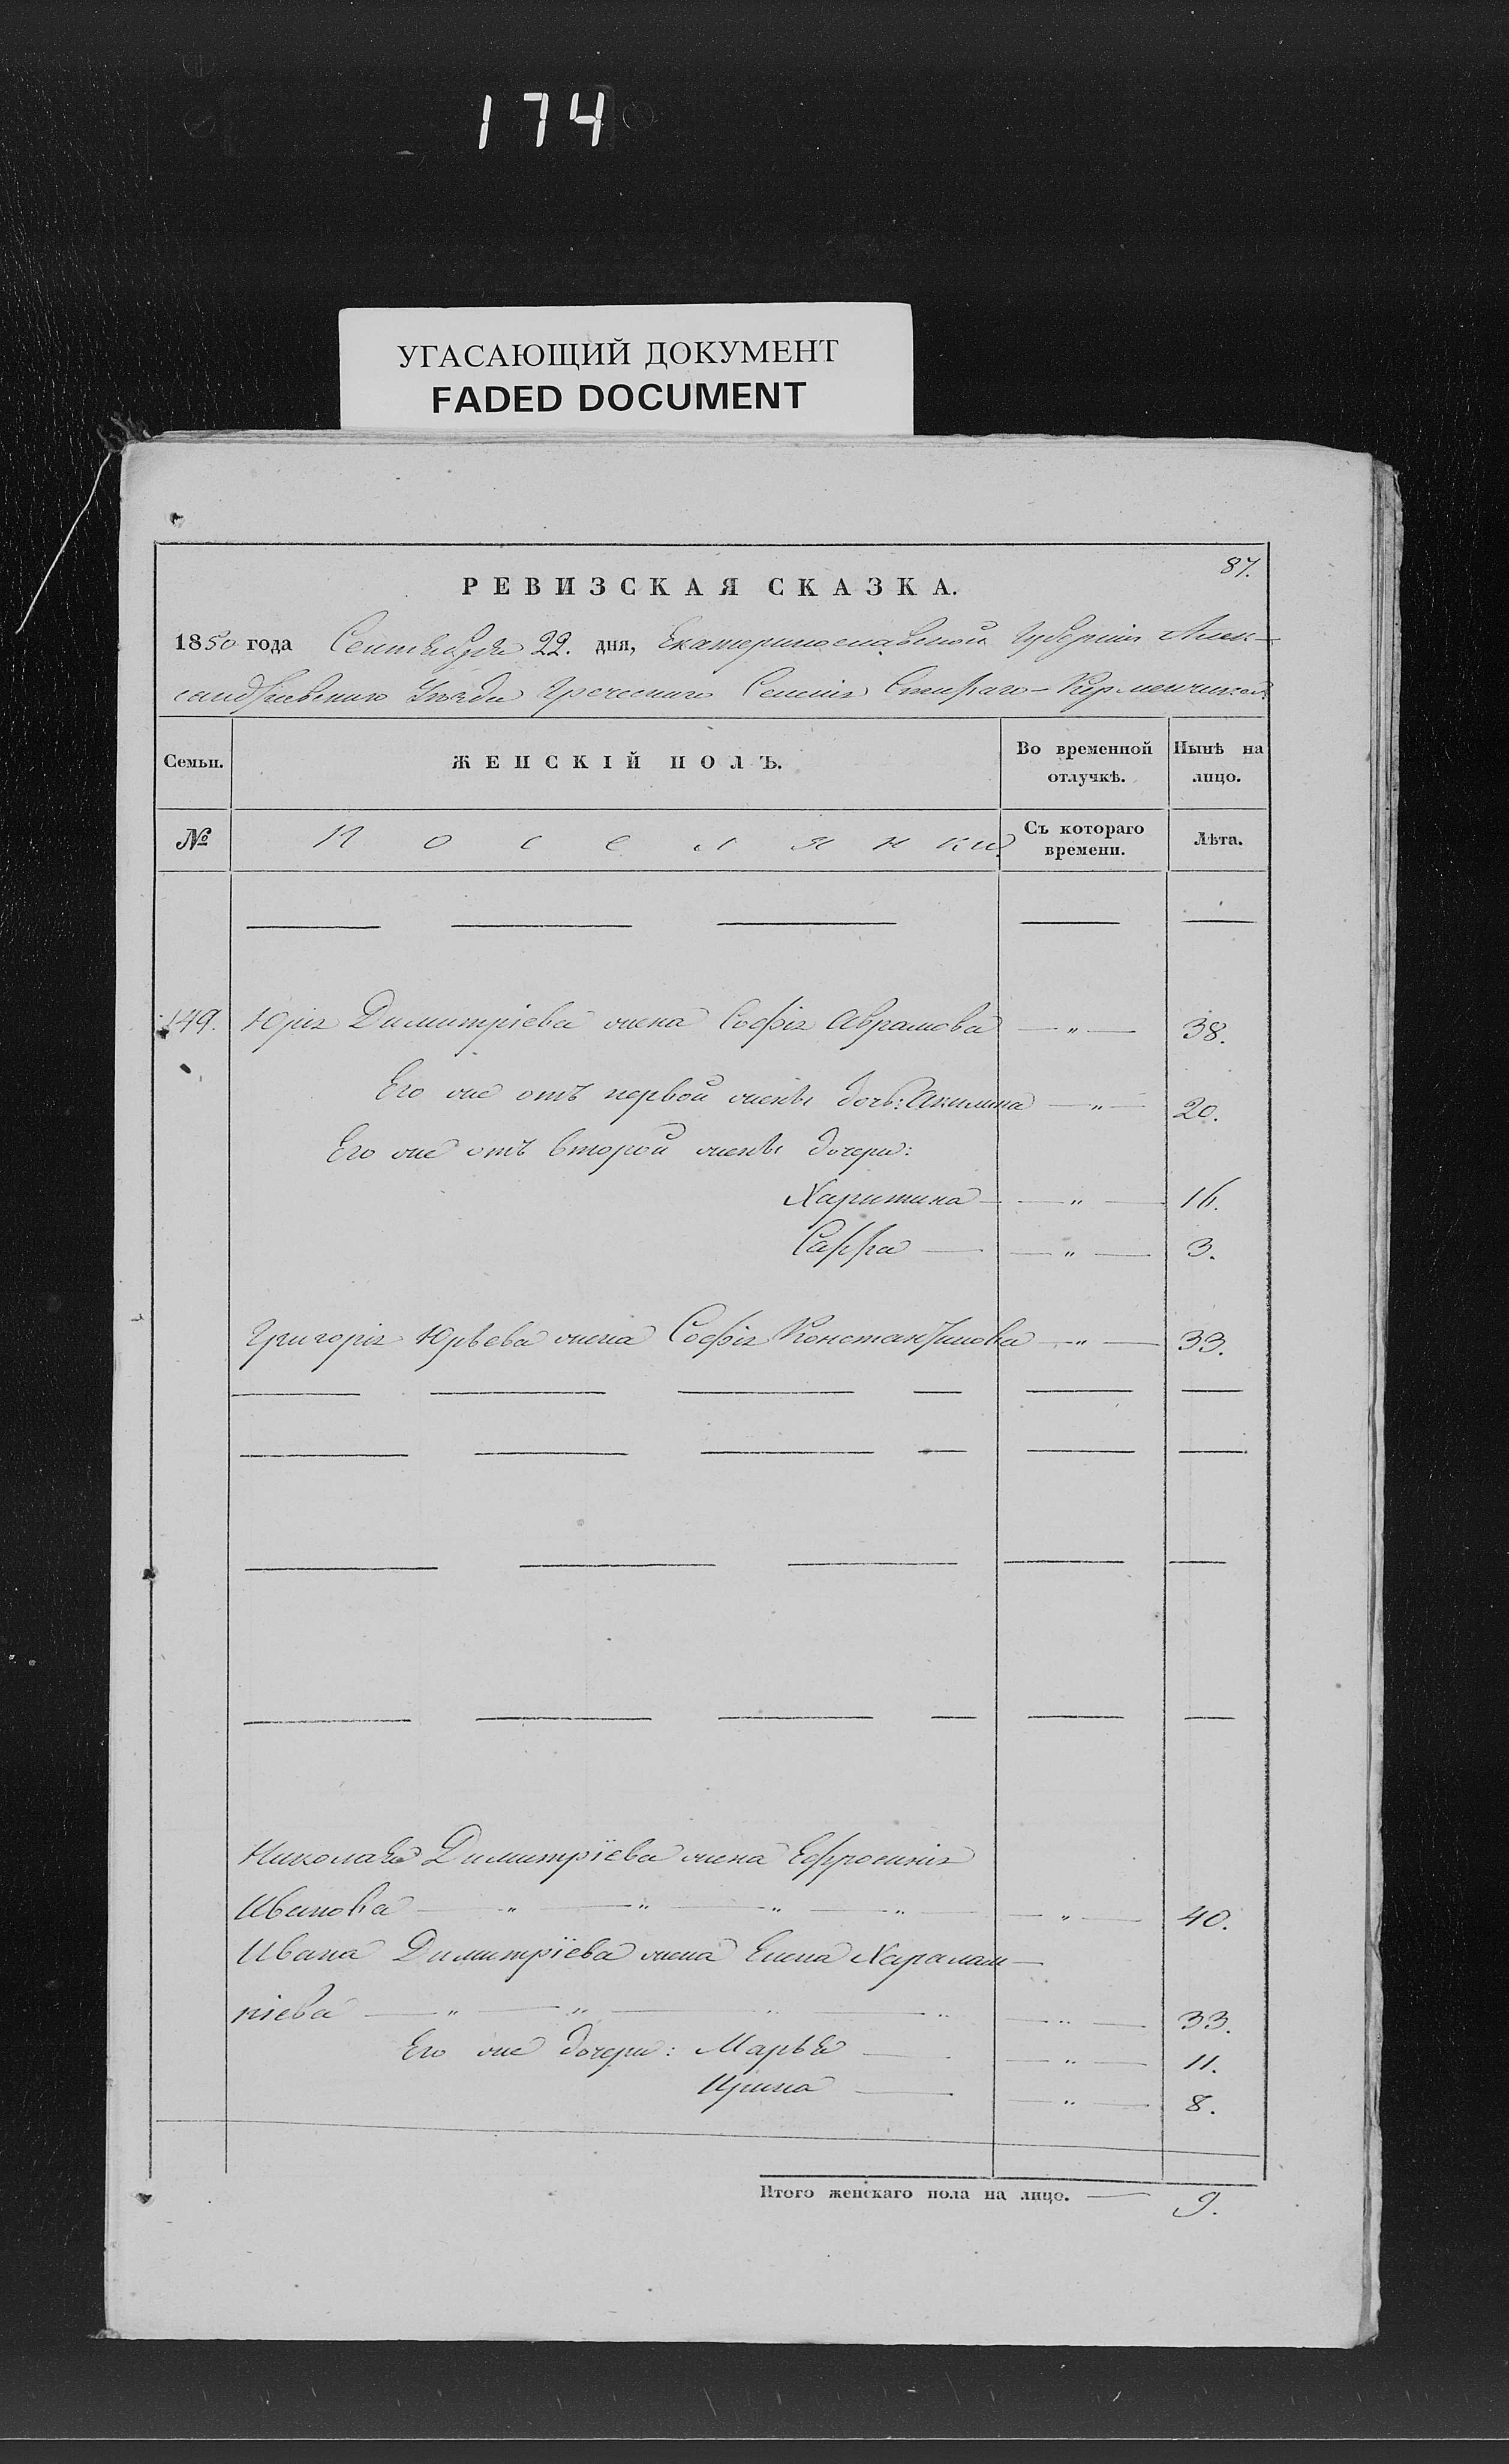 174
УГАСАЮЩИЙ ДОКУМЕНТ
FADED DOCUMENT
87.
РЕВИЗСКАЯ СКАЗКА.
1850 года Сентября 22. дня, Екатеринославской Губерніи Алек-
сандровскаго Уѣзда Греческаго Селенія Стараго-Керменчика
Семьи. ЖЕНСКІЙ ПОЛЪ. Во временной отлучкѣ. Нынѣ на лицо.
№ Поселянки. Съ котораго времени. Лѣта.
149. Юрія Димитріева жена Софія Аврамова — " — 38.
Его же отъ первой жены дочь: Акилина — " — 20.
Его же отъ второй жены дочери:
Харитина — " — 16.
Сарра — — " — 3.
Григорія Юрьева жена Софія Константинова — " — 33.
Николая Димитріева жена Ефросинія
Иванова — " — " — " — " — — " — 40.
Ивана Димитріева жена Елена Харалам-
піева — " — " — " — " — " — 33.
Его же дочери: Марья — — " — 11.
Ирина — — " — 8.
Итого женскаго пола на лицо. — 9.